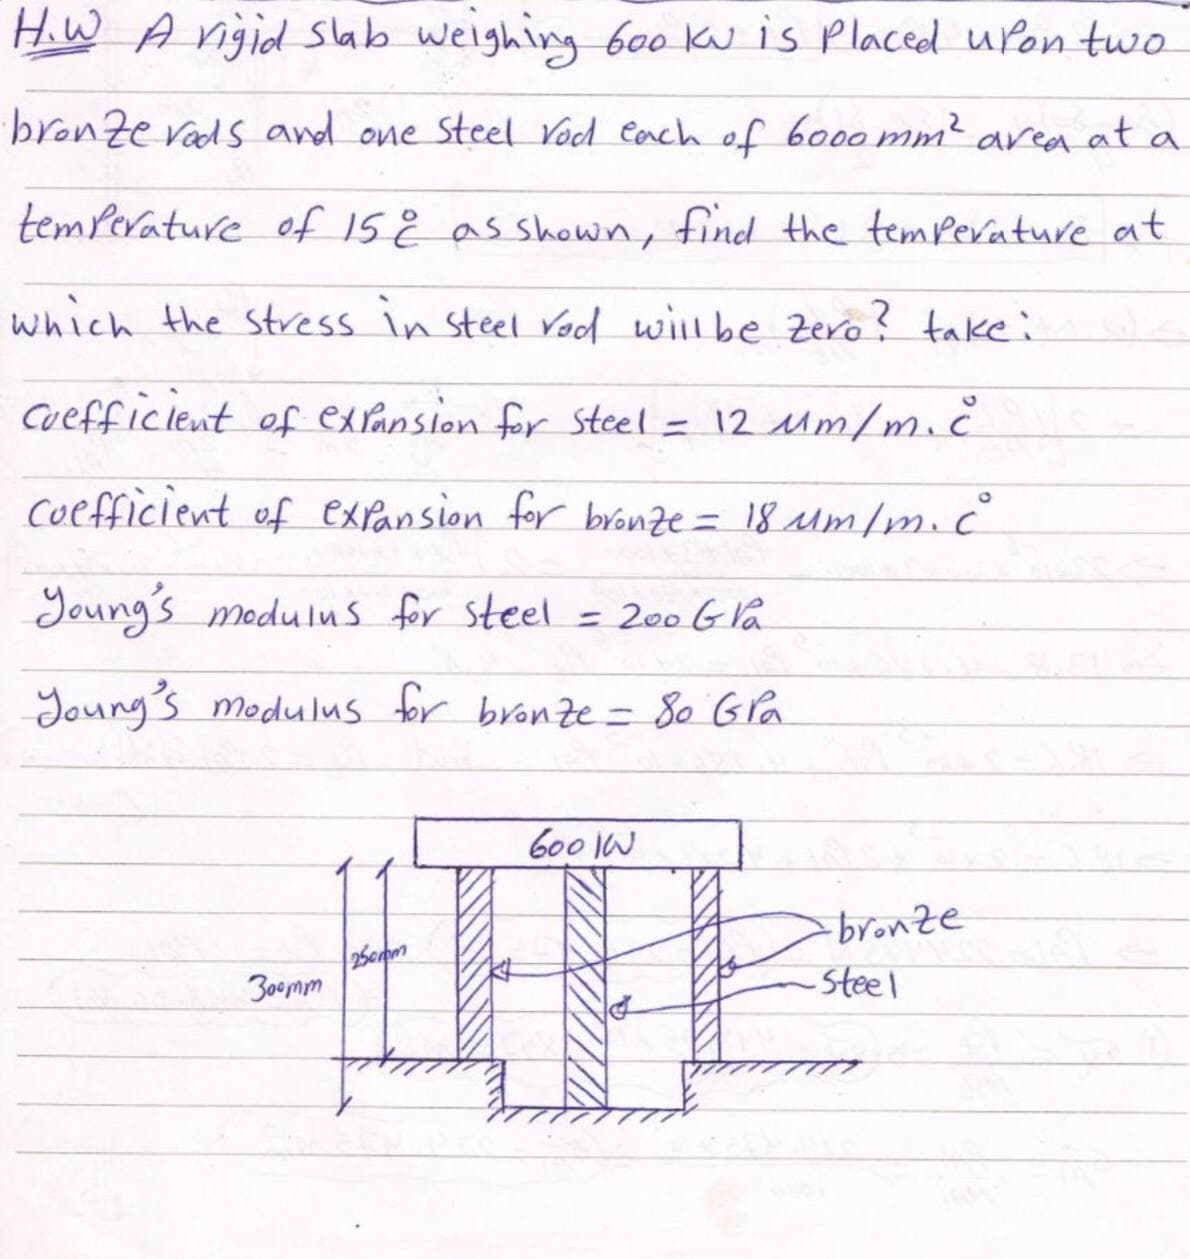 H.W A rigid slab weighing 600 kN is placed upon two
bronze rods and one steel rod each of 6000 mm² area at a
temperature of 15 C° as shown, find the temperature at
which the stress in steel rod will be zero? take:
coefficient of expansion for steel = 12 μm/m.C°
coefficient of expansion for bronze = 18 μm/m.C°
Young's modulus for steel = 200 GPa
Young's modulus for bronze = 80 GPa
600 kN
bronze
250mm
300mm
steel